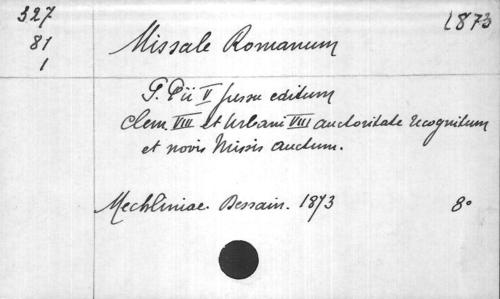 327 1873
81 Missale Romanum
1
S. Pii V jussu editum
Clem. VIII et Urbani VIII auctoritate recognitum
et novis Missis auctum.
Mechliniae. Dessain. 1873 8°